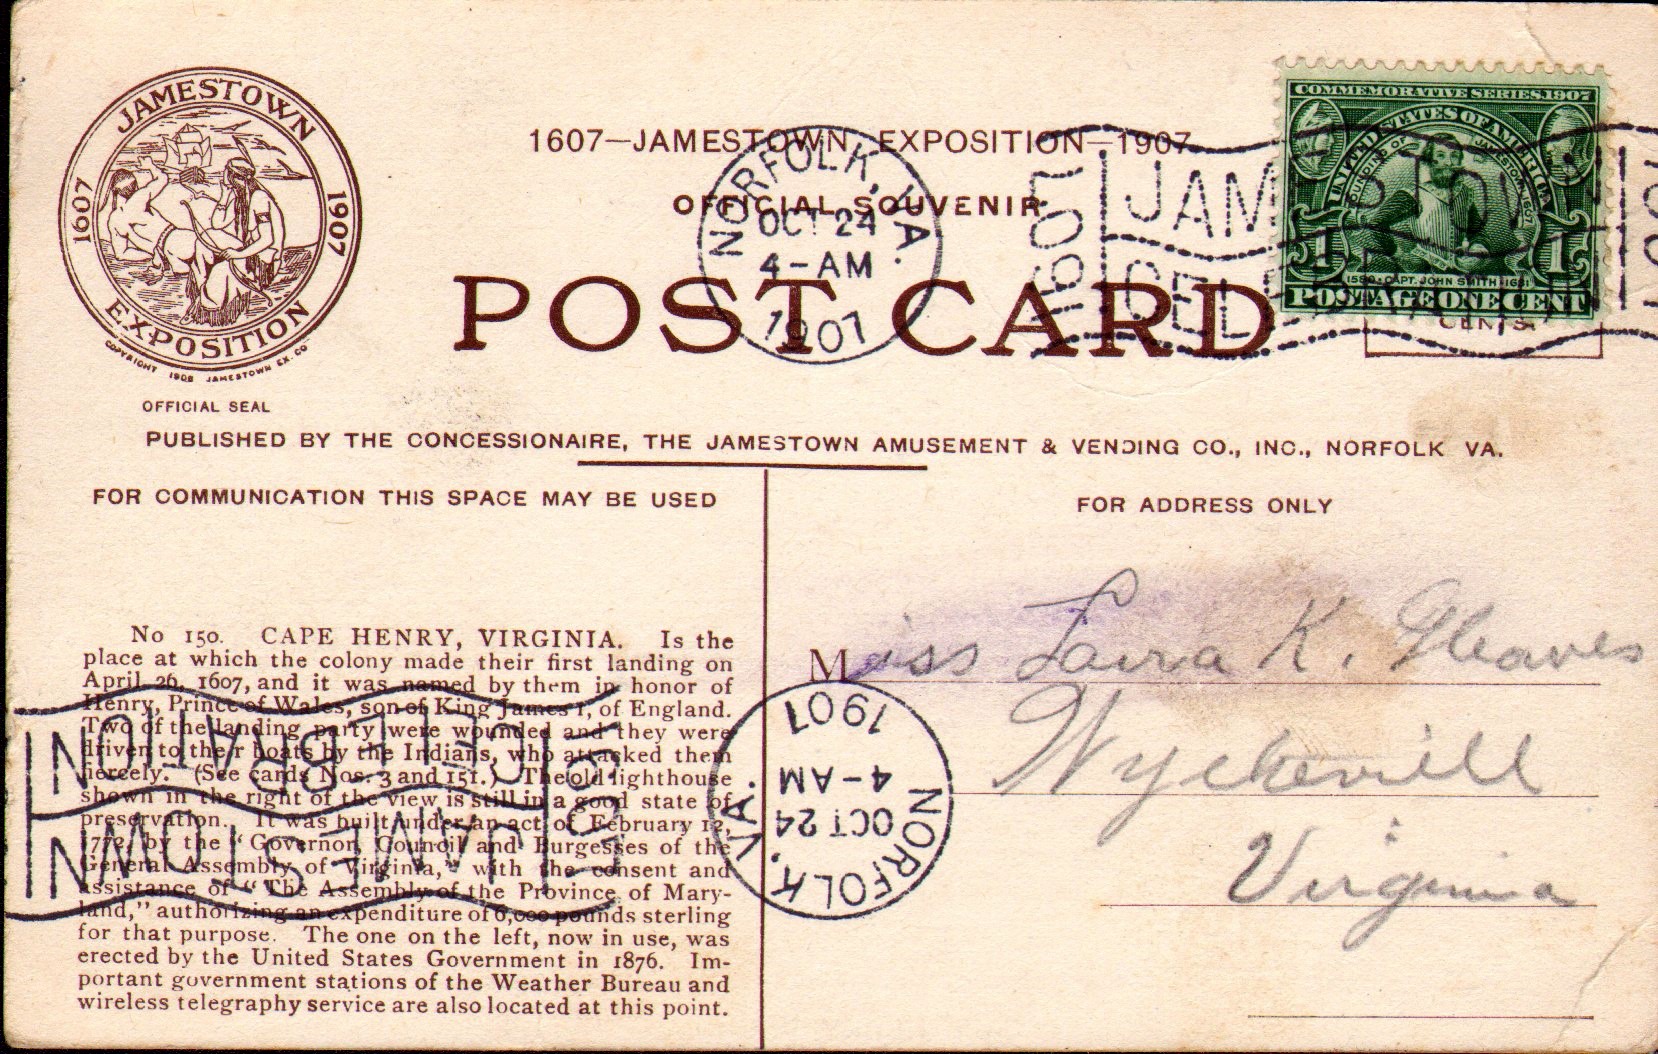 JAMESTOWN
1607 1907
EXPOSITION
COPYRIGHT 1906 JAMESTOWN EX. CO
OFFICIAL SEAL
1607—JAMESTOWN EXPOSITION—1907
OFFICIAL SOUVENIR
POST CARD
NORFOLK, VA.
OCT 24
4-AM
1907
1607
1907
JAMESTOWN
CELEBRATION
COMMEMORATIVE SERIES 1907
UNITED STATES OF AMERICA
FOUNDING OF JAMESTOWN 1607
1 1
1580 CAPT. JOHN SMITH 1631
POSTAGE ONE CENT
CENTS
PUBLISHED BY THE CONCESSIONAIRE, THE JAMESTOWN AMUSEMENT & VENDING CO., INC., NORFOLK VA.
FOR COMMUNICATION THIS SPACE MAY BE USED
No 150. CAPE HENRY, VIRGINIA. Is the
place at which the colony made their first landing on
April 26, 1607, and it was named by them in honor of
Henry, Prince of Wales, son of King James I, of England.
Two of the landing party were wounded and they were
driven to their boats by the Indians, who attacked them
fiercely. (See cards Nos. 3 and 151.) The old lighthouse
shown in the right of the view is still in a good state of
preservation. It was built under an act of February 12,
1772, by the "Governor, Council and Burgesses of the
General Assembly of Virginia," with the consent and
assistance of "The Assembly of the Province of Mary-
land," authorizing an expenditure of 6,000 pounds sterling
for that purpose. The one on the left, now in use, was
erected by the United States Government in 1876. Im-
portant government stations of the Weather Bureau and
wireless telegraphy service are also located at this point.
FOR ADDRESS ONLY
Miss Laura K. Gleaves
Wyckevill
Virginia
NORFOLK, VA.
OCT 24
4-AM
1907
JAMESTOWN
CELEBRATION